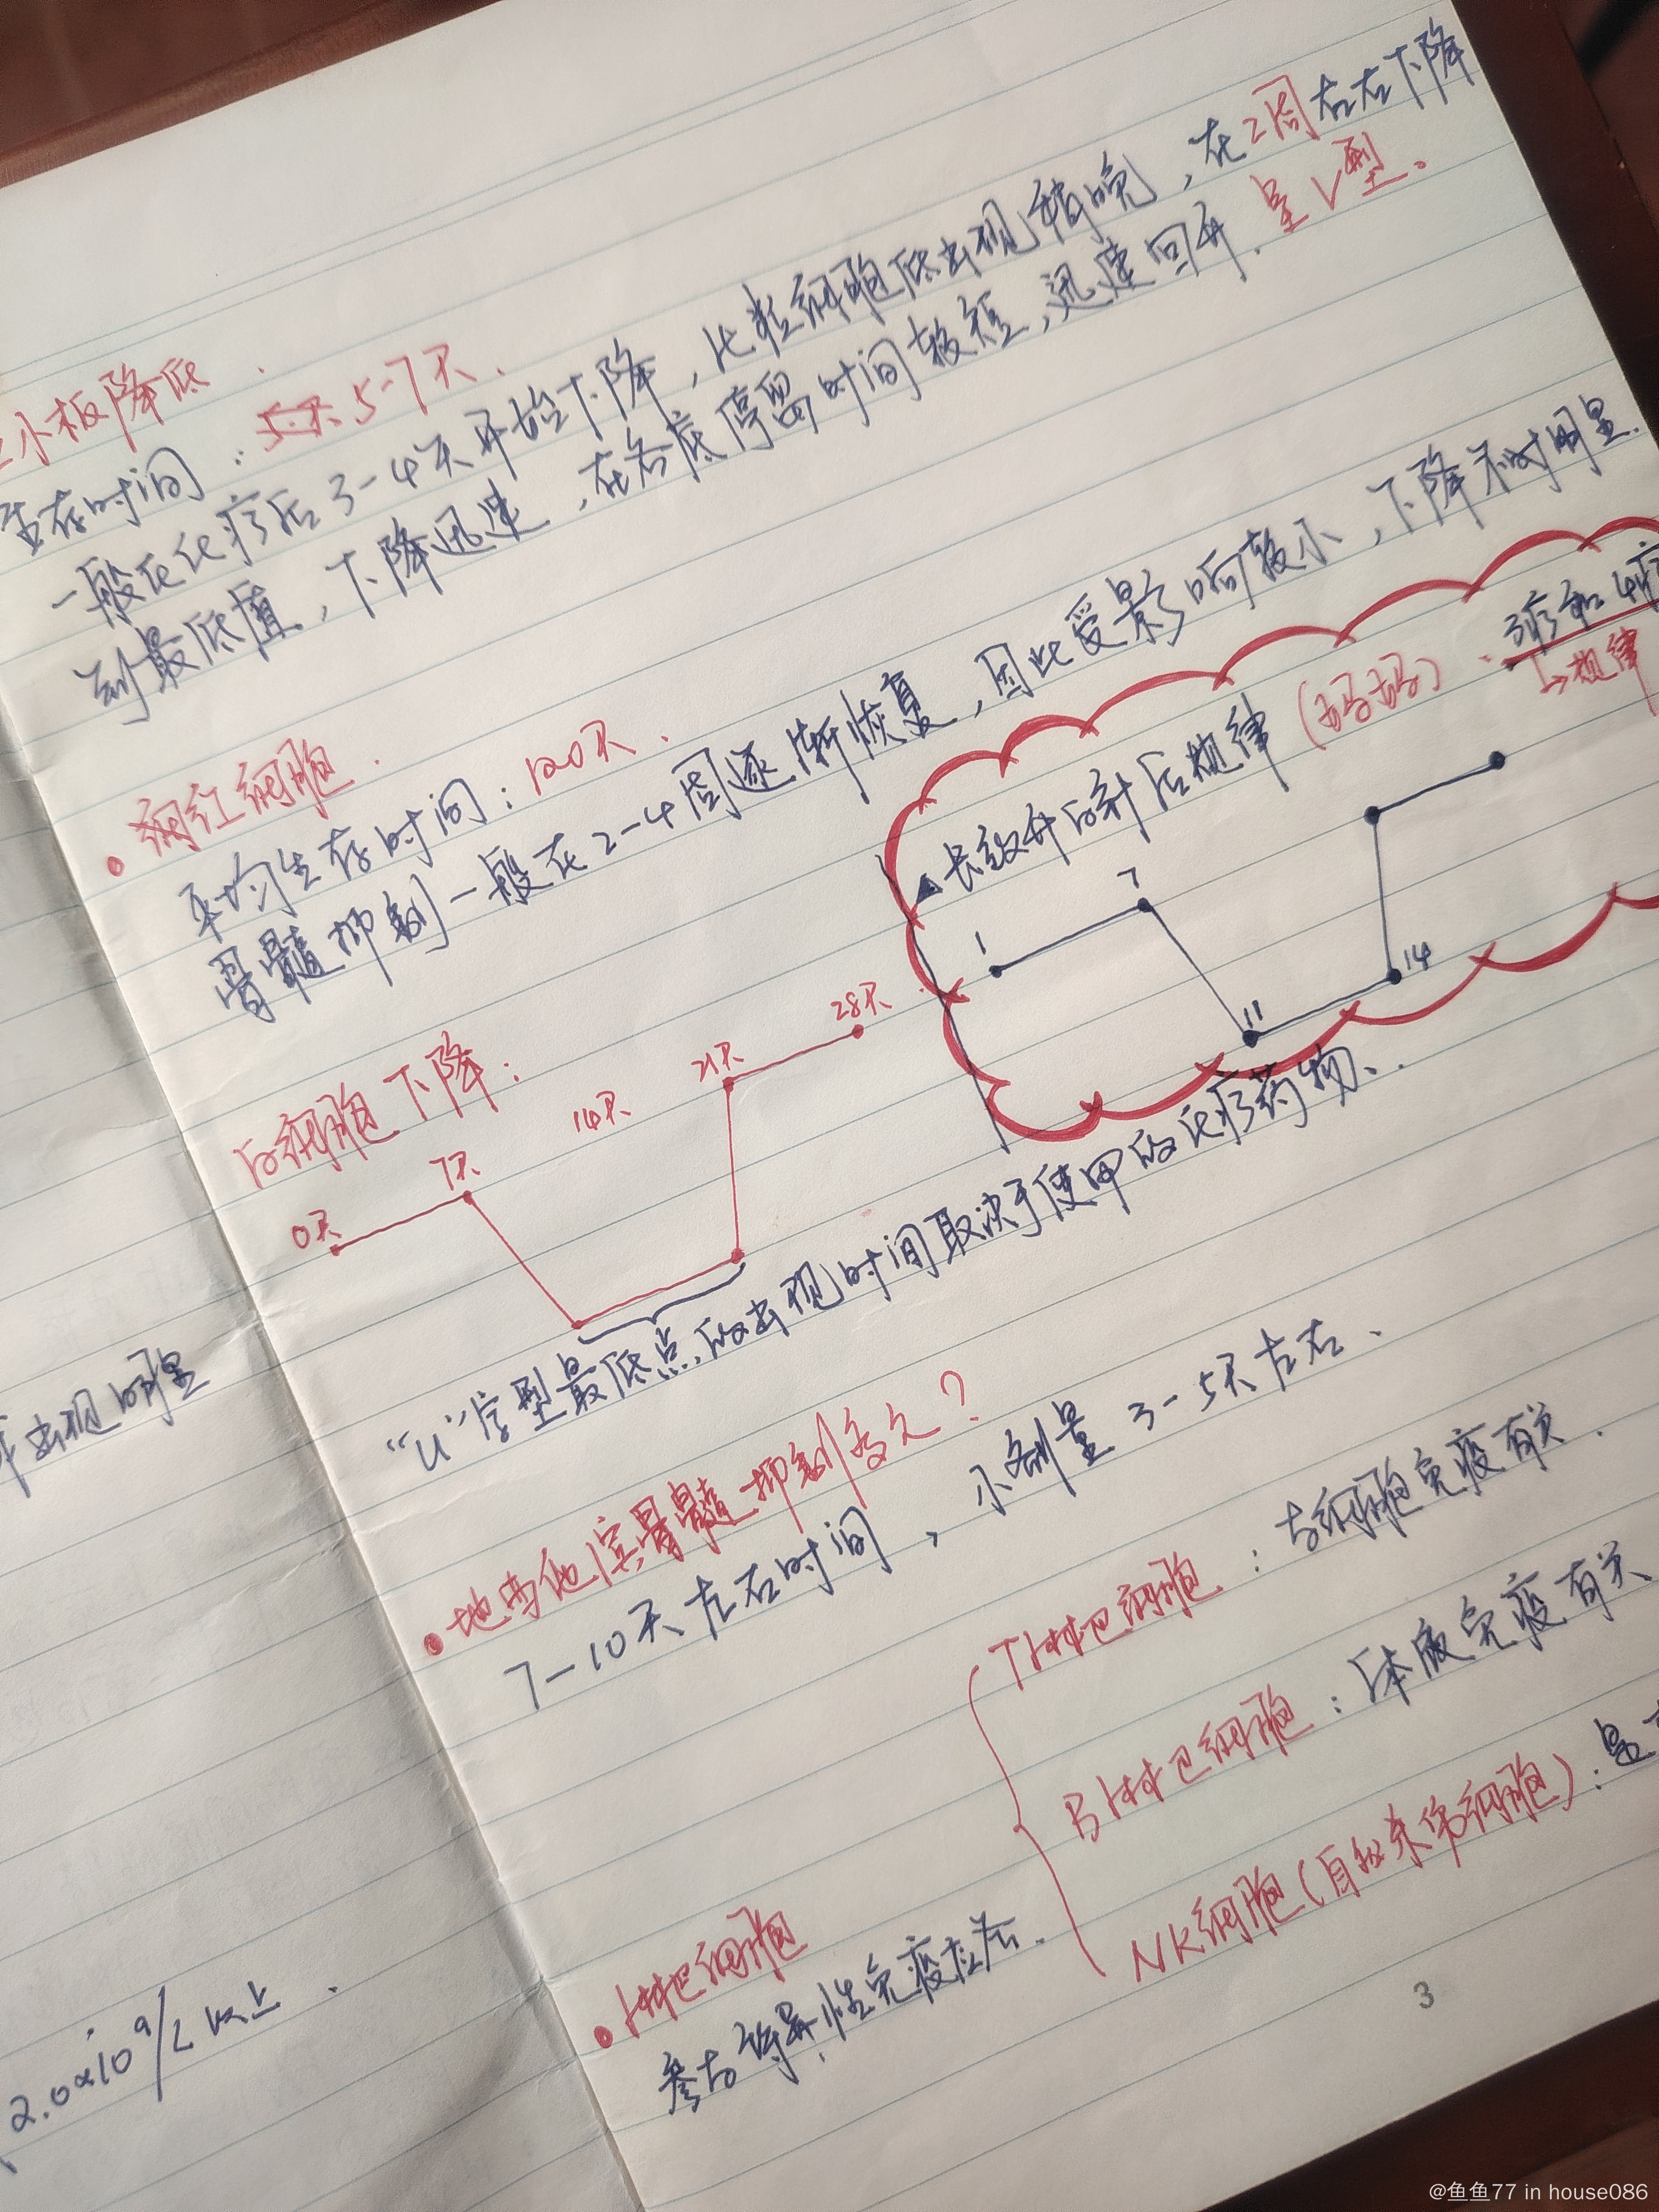 小板降低.
生存时间：5-7天.
一般在化疗后3-4天开始下降，比粒细胞低出现稍晚，在2周左右下降
到最低值，下降迅速，在谷底停留时间较短，迅速回升.呈V型。
红细胞.
平均生存时间：120天.
骨髓抑制一般在2-4周逐渐恢复，因此受影响较小，下降不明显.
长效升白针后规律（妈妈）. 3疗和4疗
↳规律
1
7
11
14
白细胞下降：
0天
7天
14天
21天
28天
“U”字型最低点的出现时间取决于使用的化疗药物.
地西他滨骨髓抑制多久？
7-10天左右时间，小剂量3-5天左右.
淋巴细胞
参与特异性免疫应答.
T淋巴细胞：与细胞免疫有关.
B淋巴细胞：体液免疫有关
NK细胞（自然杀伤细胞）：是
3
出现明显
2.0×10⁹/L以上.
@鱼鱼77 in house086